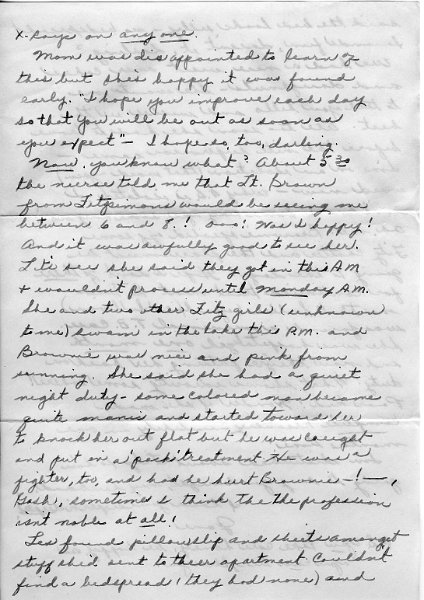 X-Rays on any one.
Mom was disappointed to learn of
this but she's happy it was found
early. "I hope you improve each day
so that you will be out as soon as
you expect" - I hope so, too, darling.
Now, you know what? About 5:30
the nurse told me that Lt. Brown
from Fitzsimons would be seeing me
between 6 and 8.! Ooo! Was I happy!
And it was awfully good to see her.
Let's see she said they got in this AM
+ wouldn't process until Monday A.M.
She and two other Fitz girls (unknown
to me) swam in the lake this P.M. and
Brownie was nice and pink from
sunning. She said she had a quiet
night duty - some colored man became
quite manic and started toward her
to knock her out flat but he was caught
and put in a 'pack' treatment He was a
fighter, too, and had he hurt Brownie -! -,
Gosh, sometimes I think the the profession
isn't noble at all!
Les found pillowslip and sheets amongst
stuff she'd sent to their apartment Couldn't
find a bedspread (they had none) and